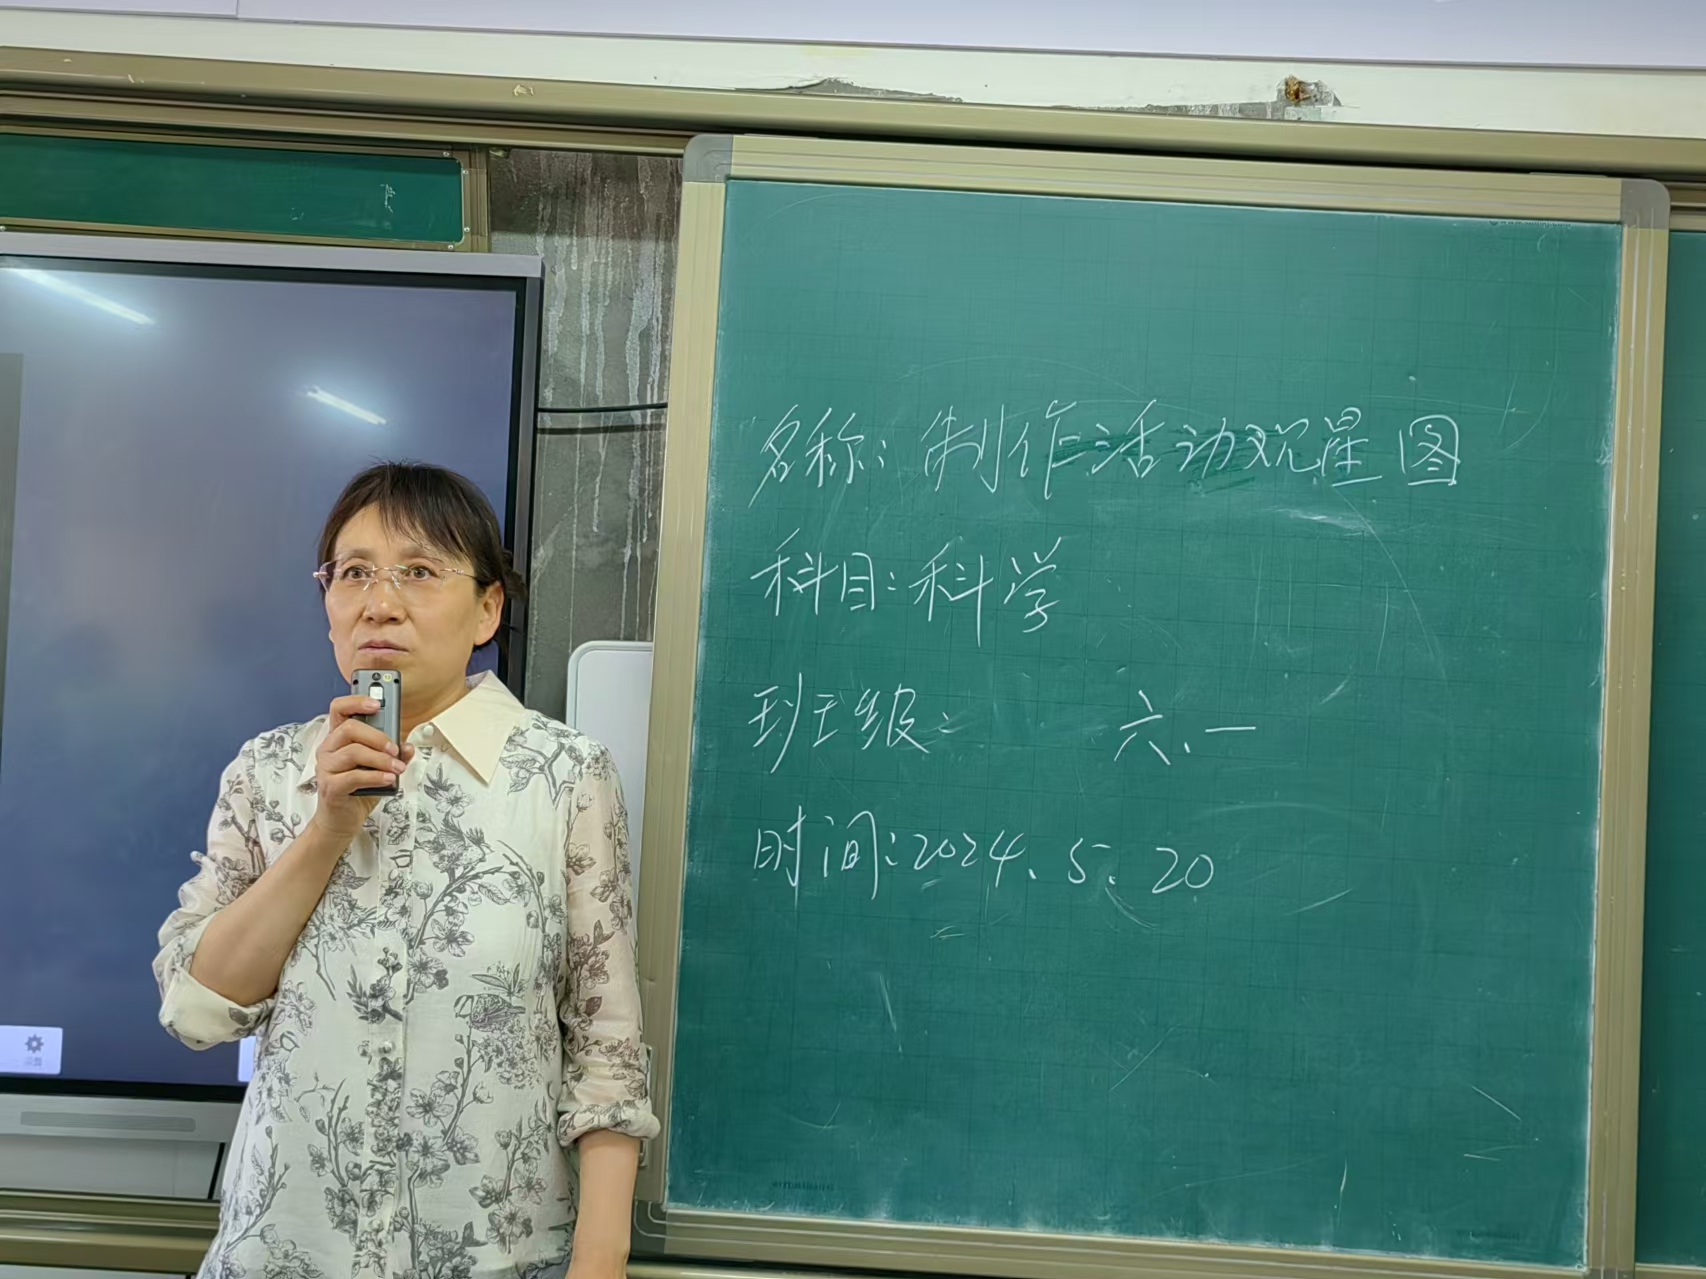 名称:制作活动观星图
科目:科学
班级: 六、一
时间:2024、5、20